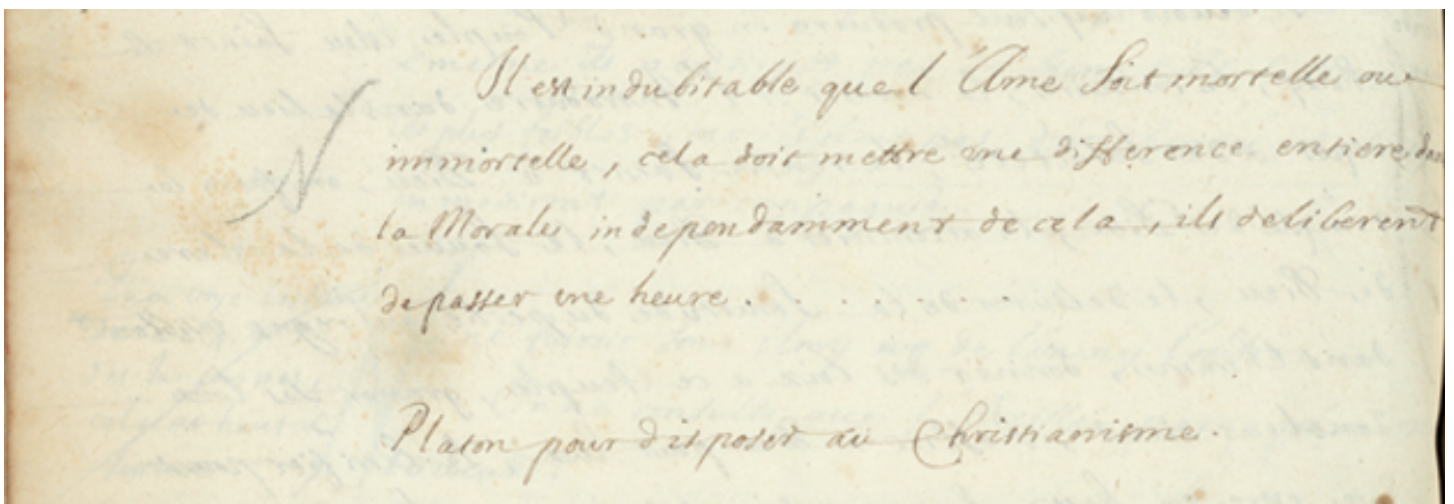 N
Il est indubitable que l'Ame soit mortelle ou
immortelle, cela doit mettre une difference entiere dans
la Morale, independamment de cela, ils deliberent
de passer une heure . . . . . . .
Platon pour disposer au Christianisme.